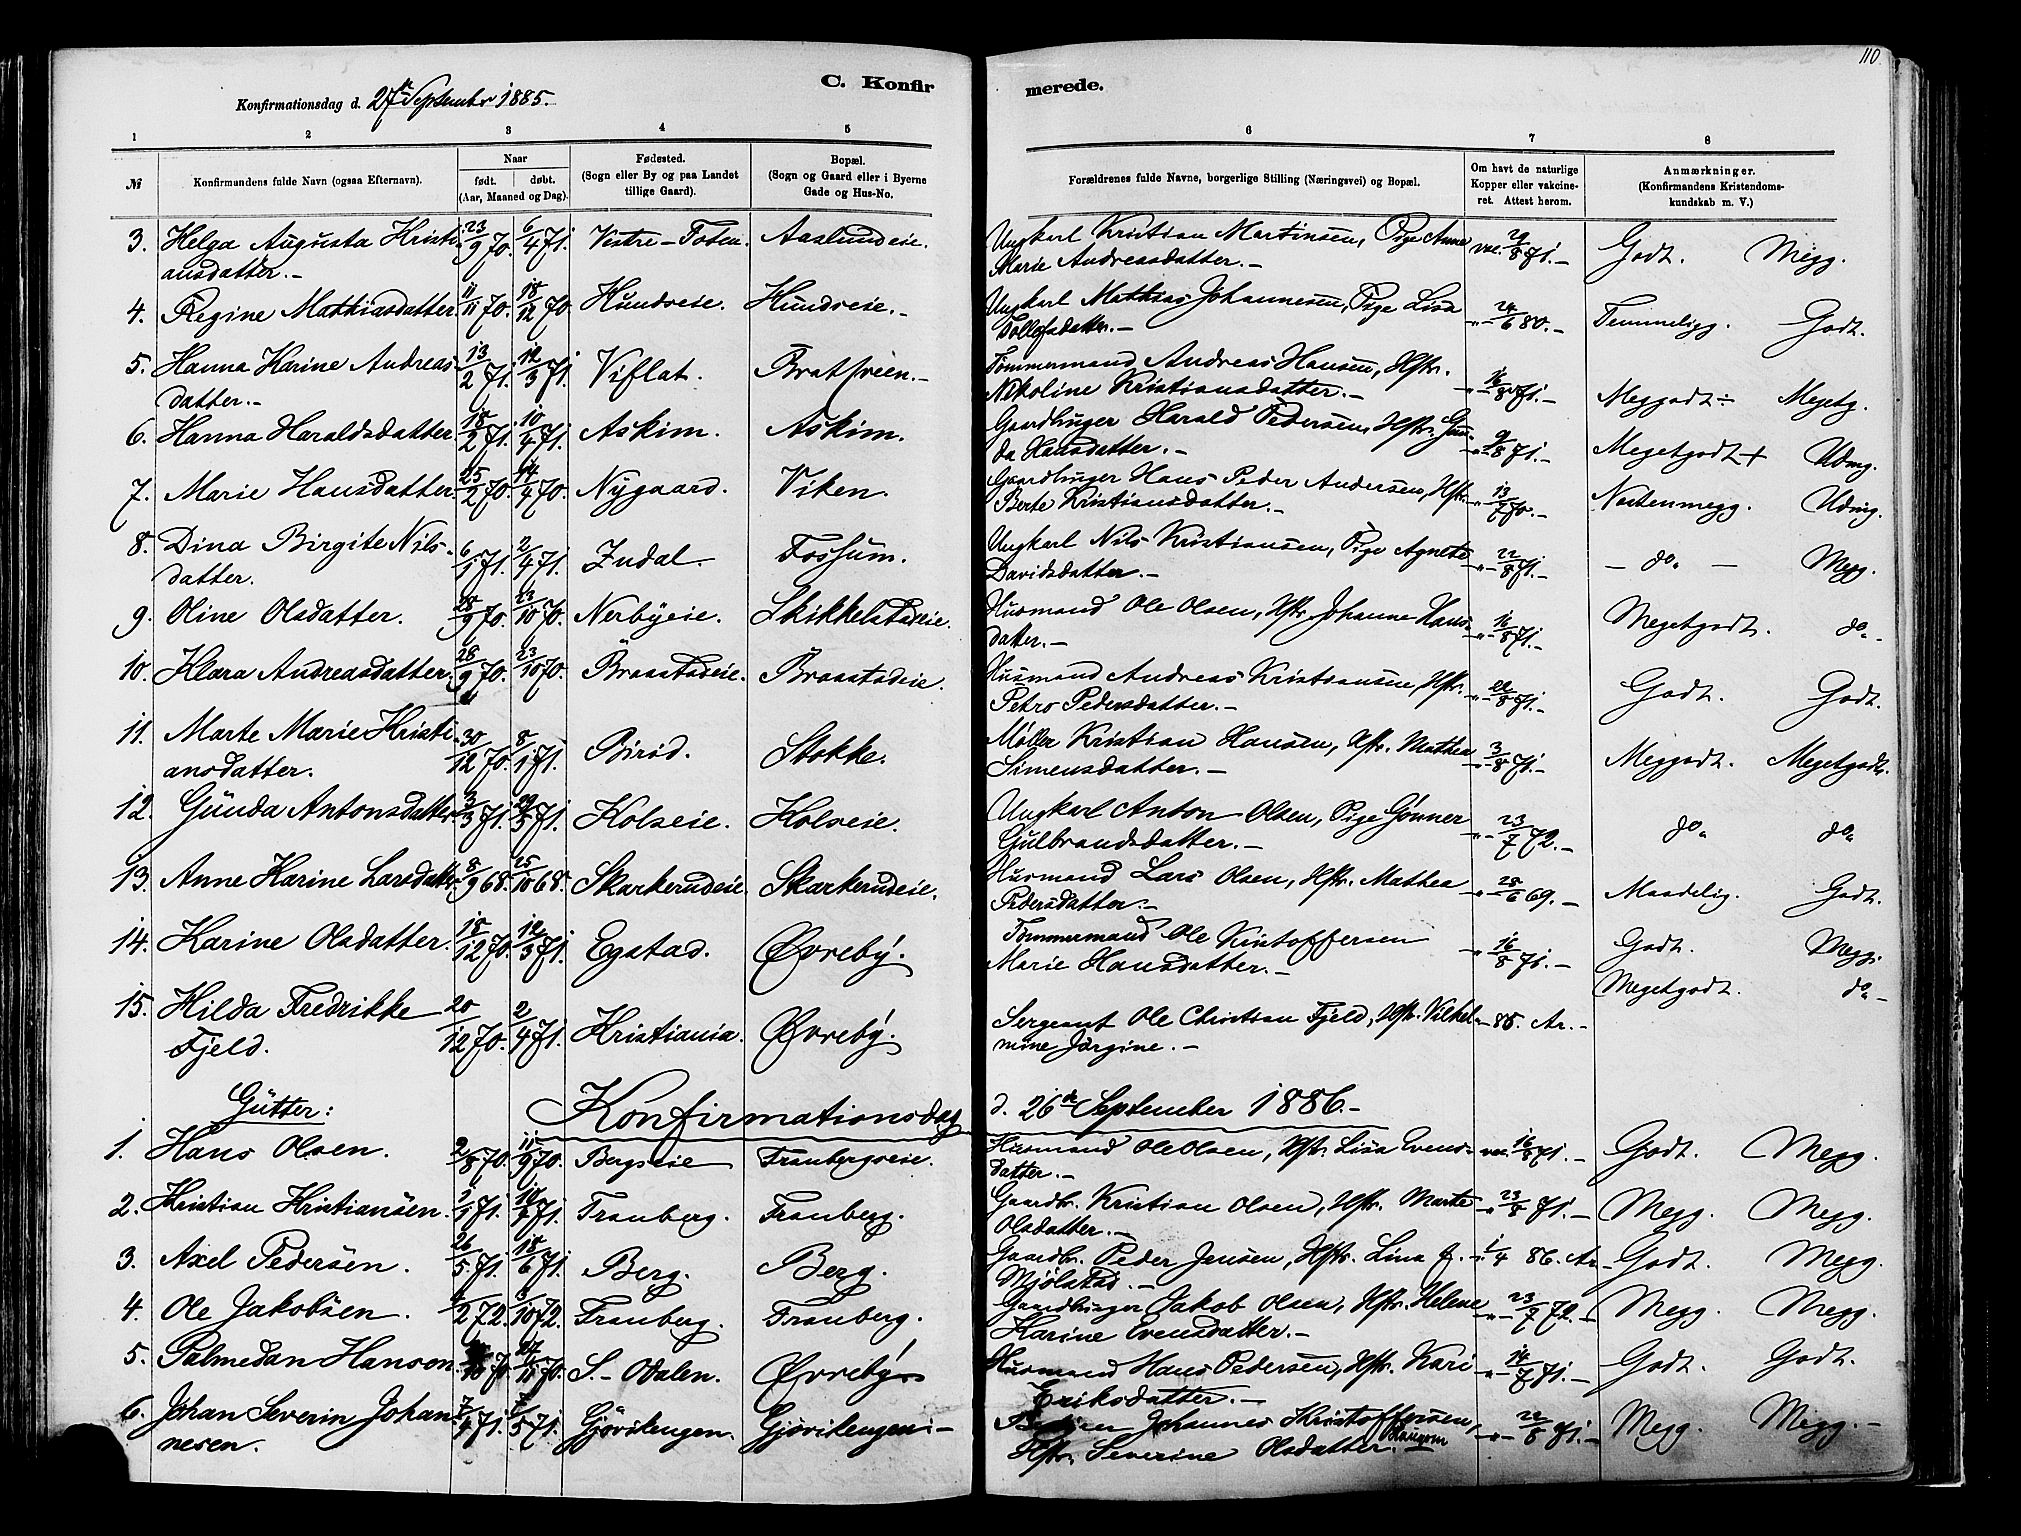 110.
C. Konfir
merede.
Konfirmationsdag d. 27de September 1885.
1 2 3 4 5 6 7 8
№ Konfirmandens fulde Navn (ogsaa Efternavn).
Naar
født. døbt.
(Aar, Maaned og Dag).
Fødested.
(Sogn eller By og paa Landet
tillige Gaard).
Bopæl.
(Sogn og Gaard eller i Byerne
Gade og Hus-No.
Forældrenes fulde Navne, borgerlige Stilling (Næringsvei) og Bopæl.
Om havt de naturlige
Kopper eller vakcine-
ret. Attest herom.
Anmærkninger.
(Konfirmandens Kristendoms-
kundskab m. V.)
3. Helga Augusta Kristi- 23/9 70. 6/4 71. Vestre-Toten. Aaslundeie. Ungkarl Kristian Martinsen, Pige Anne vac. 29/8 71.- Godt. Megg.
ansdatter.- Marie Andreasdatter.-
4. Regine Mathiasdatter 11/11 70. 18/12 70. Hundseie. Hundseie.- Ungkarl Mathias Johannesen, Pige Lisa -"- 24/6 80.- Temmeligg. Godt.
Tollefsdatter.-
5. Hanna Karine Andreas- 13/2 71. 12/3 71. Viflat. Bratlien.- Tømmermand Andreas Hansen, Hstr. -"- 16/8 71.- Meggodt÷ Megetg.
datter.- Nikoline Kristiansdatter.-
6. Hanna Haraldsdatter 18/2 71. 10/4 71. Askim. Askim. Gaardbruger Harald Pedersen, Hstr. Gun- -"- 9/8 71.- Megetgodt+ Udmg.
da Hansdatter.-
7. Marie Hansdatter. 25/2 70. 14/4 70. Nygaard. Viken. Gaardbruger Hans Peder Andersen, Hstr. -"- 13/7 70.- Næstenmegg. Udmg.
Berte Kristiansdatter.-
8. Dina Birgite Nils- 6/1 71. 2/4 71. Indal. Fossum. Ungkarl Nils Kristiansen, Pige Agnete -"- 22/8 71.- - do. - Megg.
datter. Davidsdatter.-
9. Oline Olsdatter. 28/9 70. 23/10 70. Nerbyeie. Skikkelstadeie. Husmand Ole Olsen, Hstr. Johanne Hans- -"- 16/8 71.- Megetgodt. do.-
datter.-
10. Klara Andreasdatter. 28/9 70. 23/10 70. Braastadeie. Braastadeie. Husmand Andreas Kristiansen, Hstr. -"- 22/8 71.- Godt. Godt.
Petro Pedersdatter.-
11. Marte Marie Kristi- 30/12 70. 8/1 71. Biri. Stokke. Møller Kristian Hansen, Hstr. Mathea -"- 3/8 71.- Meggodt. Megetgodt.
ansdatter. Simensdatter.-
12. Günda Antonsdatter 3/3 71. 29/5 71. Kolseie. Kolseie. Ungkarl Anton Olsen, Pige Gønner -"- 23/7 72.- do. do.
Gulbrandsdatter.-
13. Anne Karine Larsdatter 8/9 68. 25/10 68. Skarkerudeie. Skarkerudeie. Husmand Lars Olsen, Hstr. Mathea -"- 28/6 69.- Maadelig. Godt.
Pedersdatter.-
14. Karine Olsdatter. 18/12 70. 12/3 71. Egstad. Øvreby. Tømmermand Ole Kristoffersen -"- 16/8 71.- Godt. Megg.
Marie Hansdatter.-
15. Hilda Fredrikke 20/12 70. 2/4 71. Kristiania. Øvreby. Sergeant Ole Christian Fjeld, Hstr. Vilhel- -"- 85. Ar.- Megetgodt. do.-
Fjeld. mine Jørgine.-
Gütter: Konfirmationsdag d. 26de September 1886.-
1. Hans Olsen. 2/8 70. 11/9 70. Bergseie Tranbergseie. Husmand Ole Olsen, Hstr. Lisa Evens- vac. 16/8 71.- Godt. Megg.
datter.-
2. Kristian Kristiansen. Tranberg. Tranberg. Gaardbr. Kristian Olsen, Hstr. Marte -"- 23/8 71.- Megg. Megg.
Olsdatter.-
3. Axel Pedersen. 26/5 71. 18/6 71. Berg. Berg. Gaardbr. Peder Jensen, Hstr. Lina f. 1/4 86. Ar. Godt. Megg.
Mjølstad.-
4. Ole Jakobsen. Tranberg. Tranberg. Gaardbruger Jakob Olsen, Hstr. Helene -"- 23/7 72.- Megg. Megg.
Karine Evensdatter.-
5. Palmedan Hansen. S. Odalen. Øvreby Husmand Hans Pedersen, Hstr. Kari -"- 14/7 71.- Godt. Godt.
Eriksdatter.-
6. Johan Severin Johan- 7/4 71. Gjøvikengen. Gjøvikengen.- Johannes Kristoffersen, -"- 22/8 71.- Megg. Megg.-
nesen. Hstr. Severine Olsdatter.